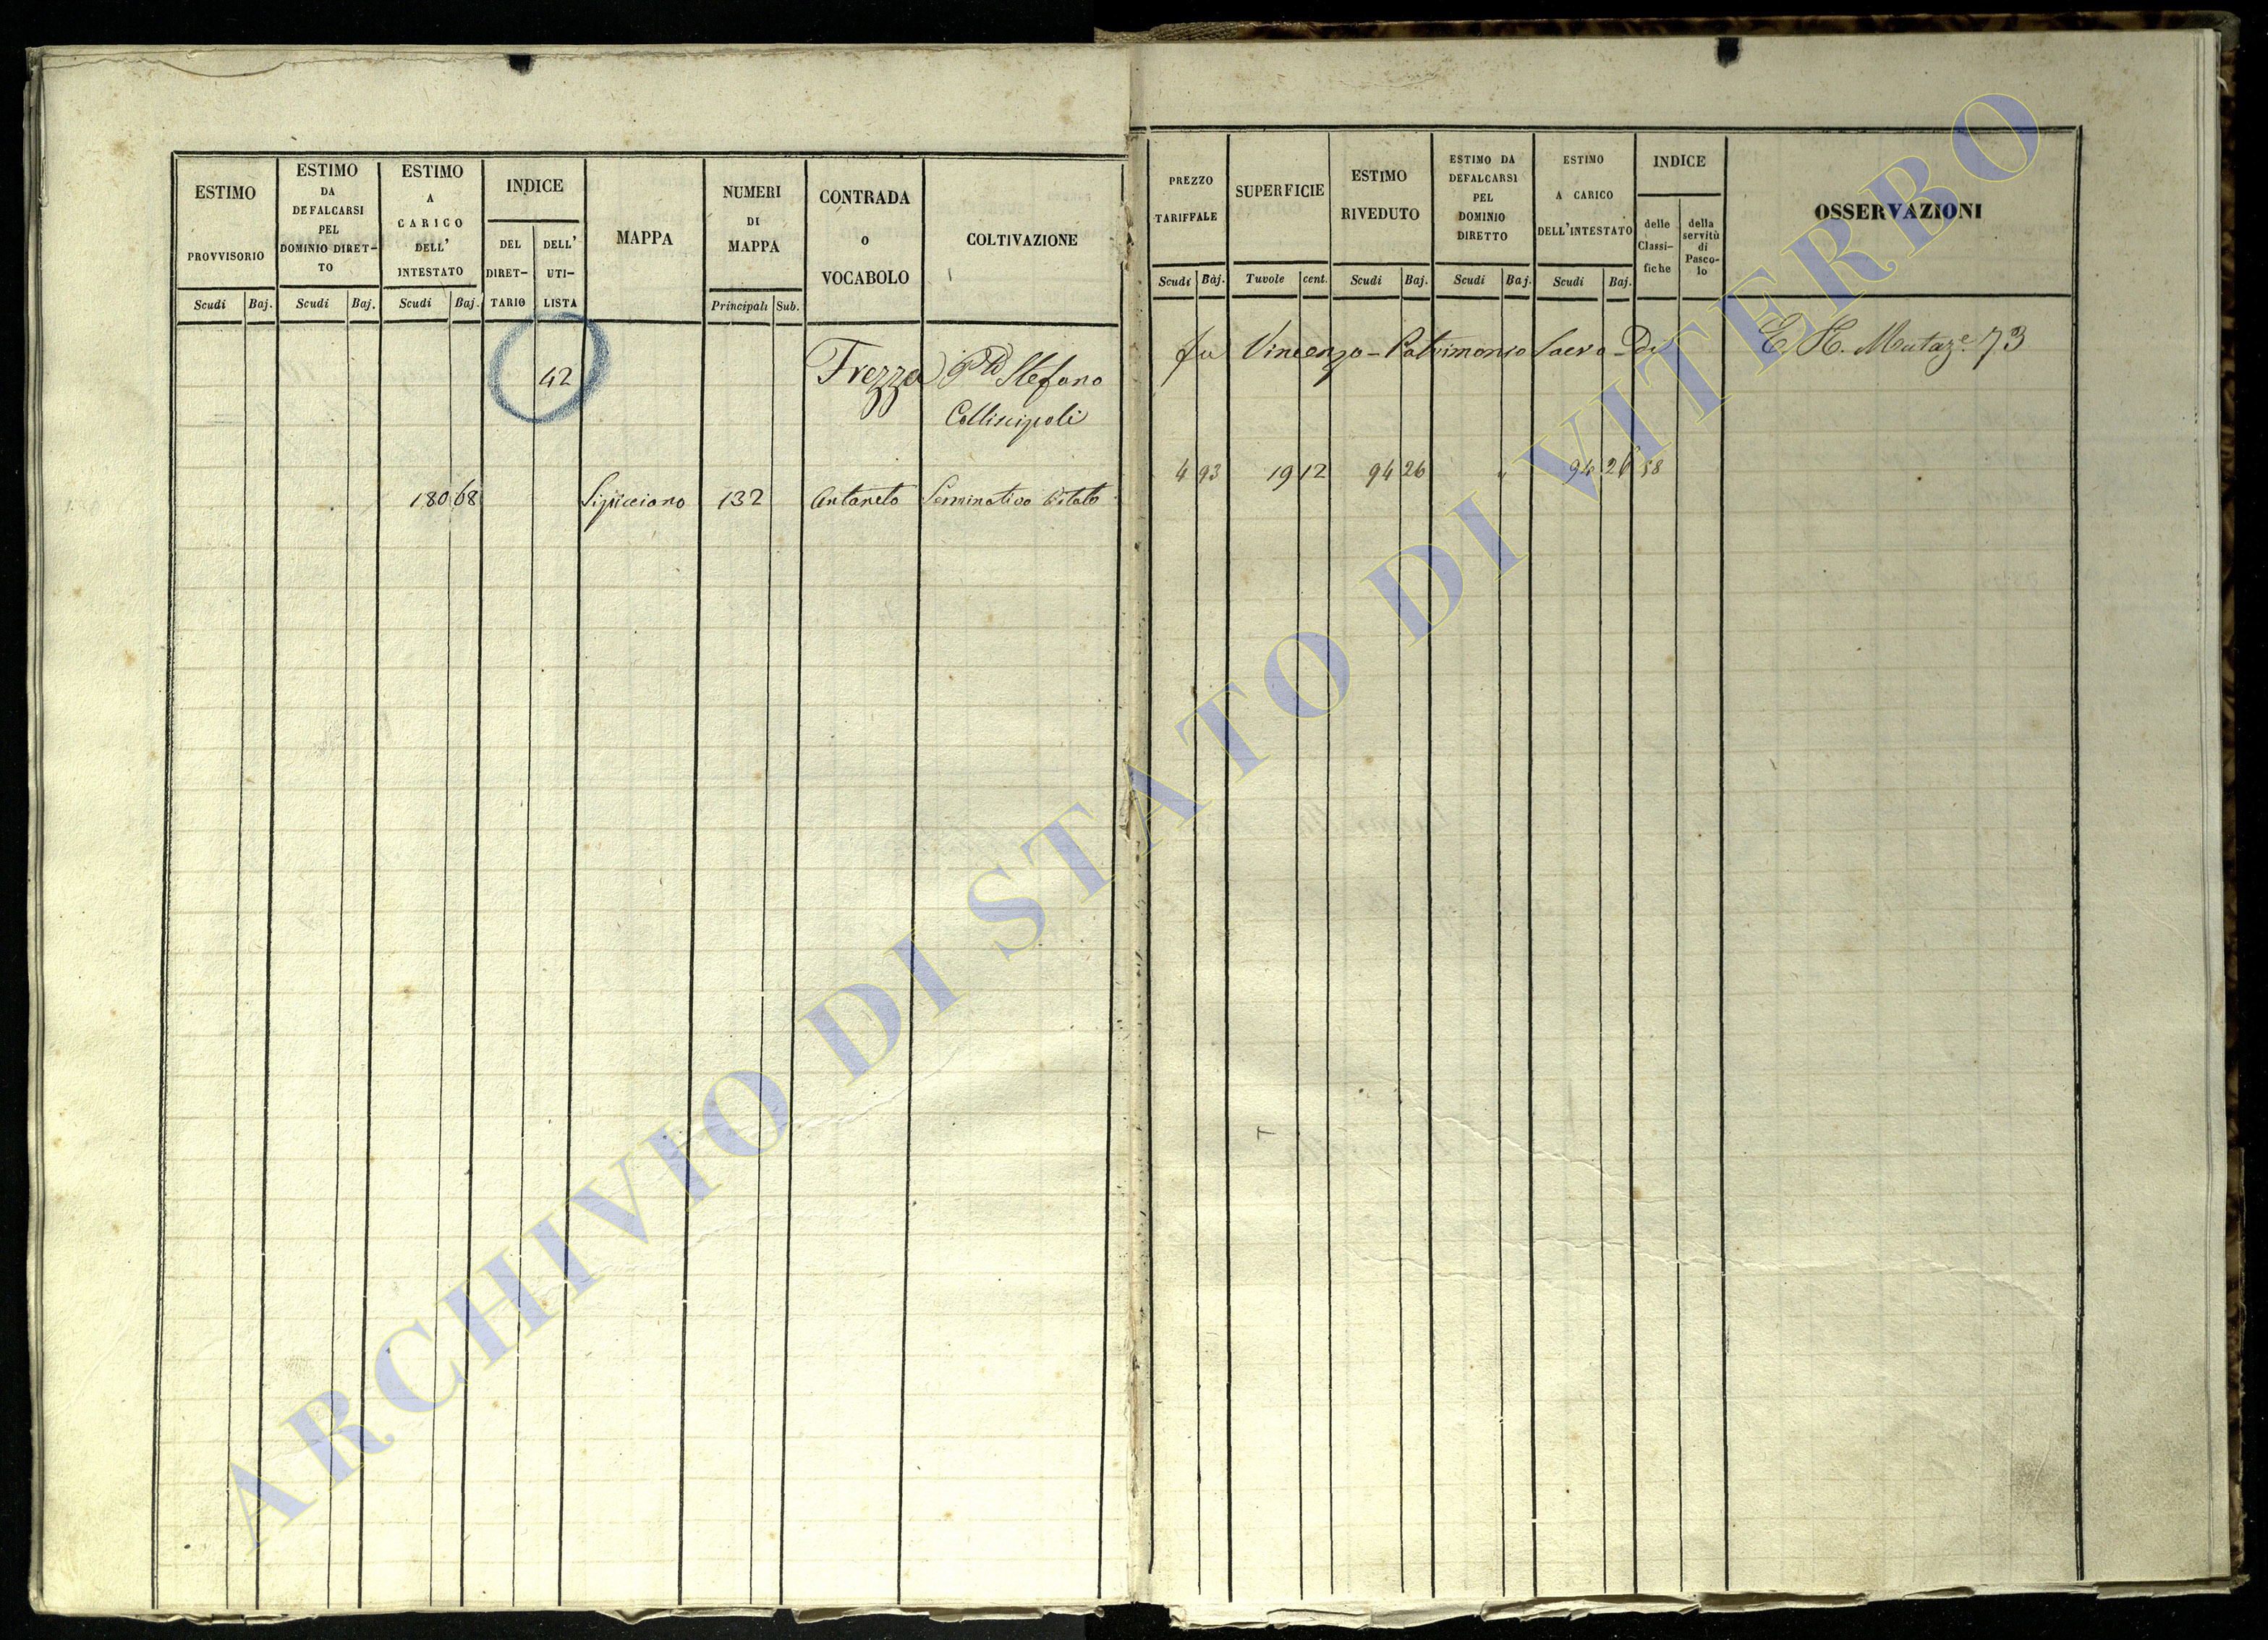 ESTIMO
PROVVISORIO
Scudi Baj.
ESTIMO
DA
DEFALCARSI
PEL
DOMINIO DIRET-
TO
Scudi Baj.
ESTIMO
A
CARICO
DELL'
INTESTATO
Scudi Baj.
INDICE
DEL
DIRET-
TARIO
DELL'
UTI-
LISTA
MAPPA
NUMERI
DI
MAPPA
Principali Sub.
CONTRADA
O
VOCABOLO
COLTIVAZIONE
PREZZO
TARIFFALE
Scudi Baj.
SUPERFICIE
Tavole cent.
ESTIMO
RIVEDUTO
Scudi Baj.
ESTIMO DA
DEFALCARSI
PEL
DOMINIO
DIRETTO
Scudi Baj.
ESTIMO
A CARICO
DELL'INTESTATO
Scudi Baj.
INDICE
delle
Classi-
fiche
della
servitù
di
Pasco-
lo
OSSERVAZIONI
42 Frezza Stefano fu Vincenzo - Patrimonio Sacro - Di E. H. Mutaz.e 73
Colliscipoli
180 68 Sipicciano 132 Antaneto Seminativo Vitato 4 93 19 12 94 26 " 94 26 58
ARCHIVIO DI STATO DI VITERBO